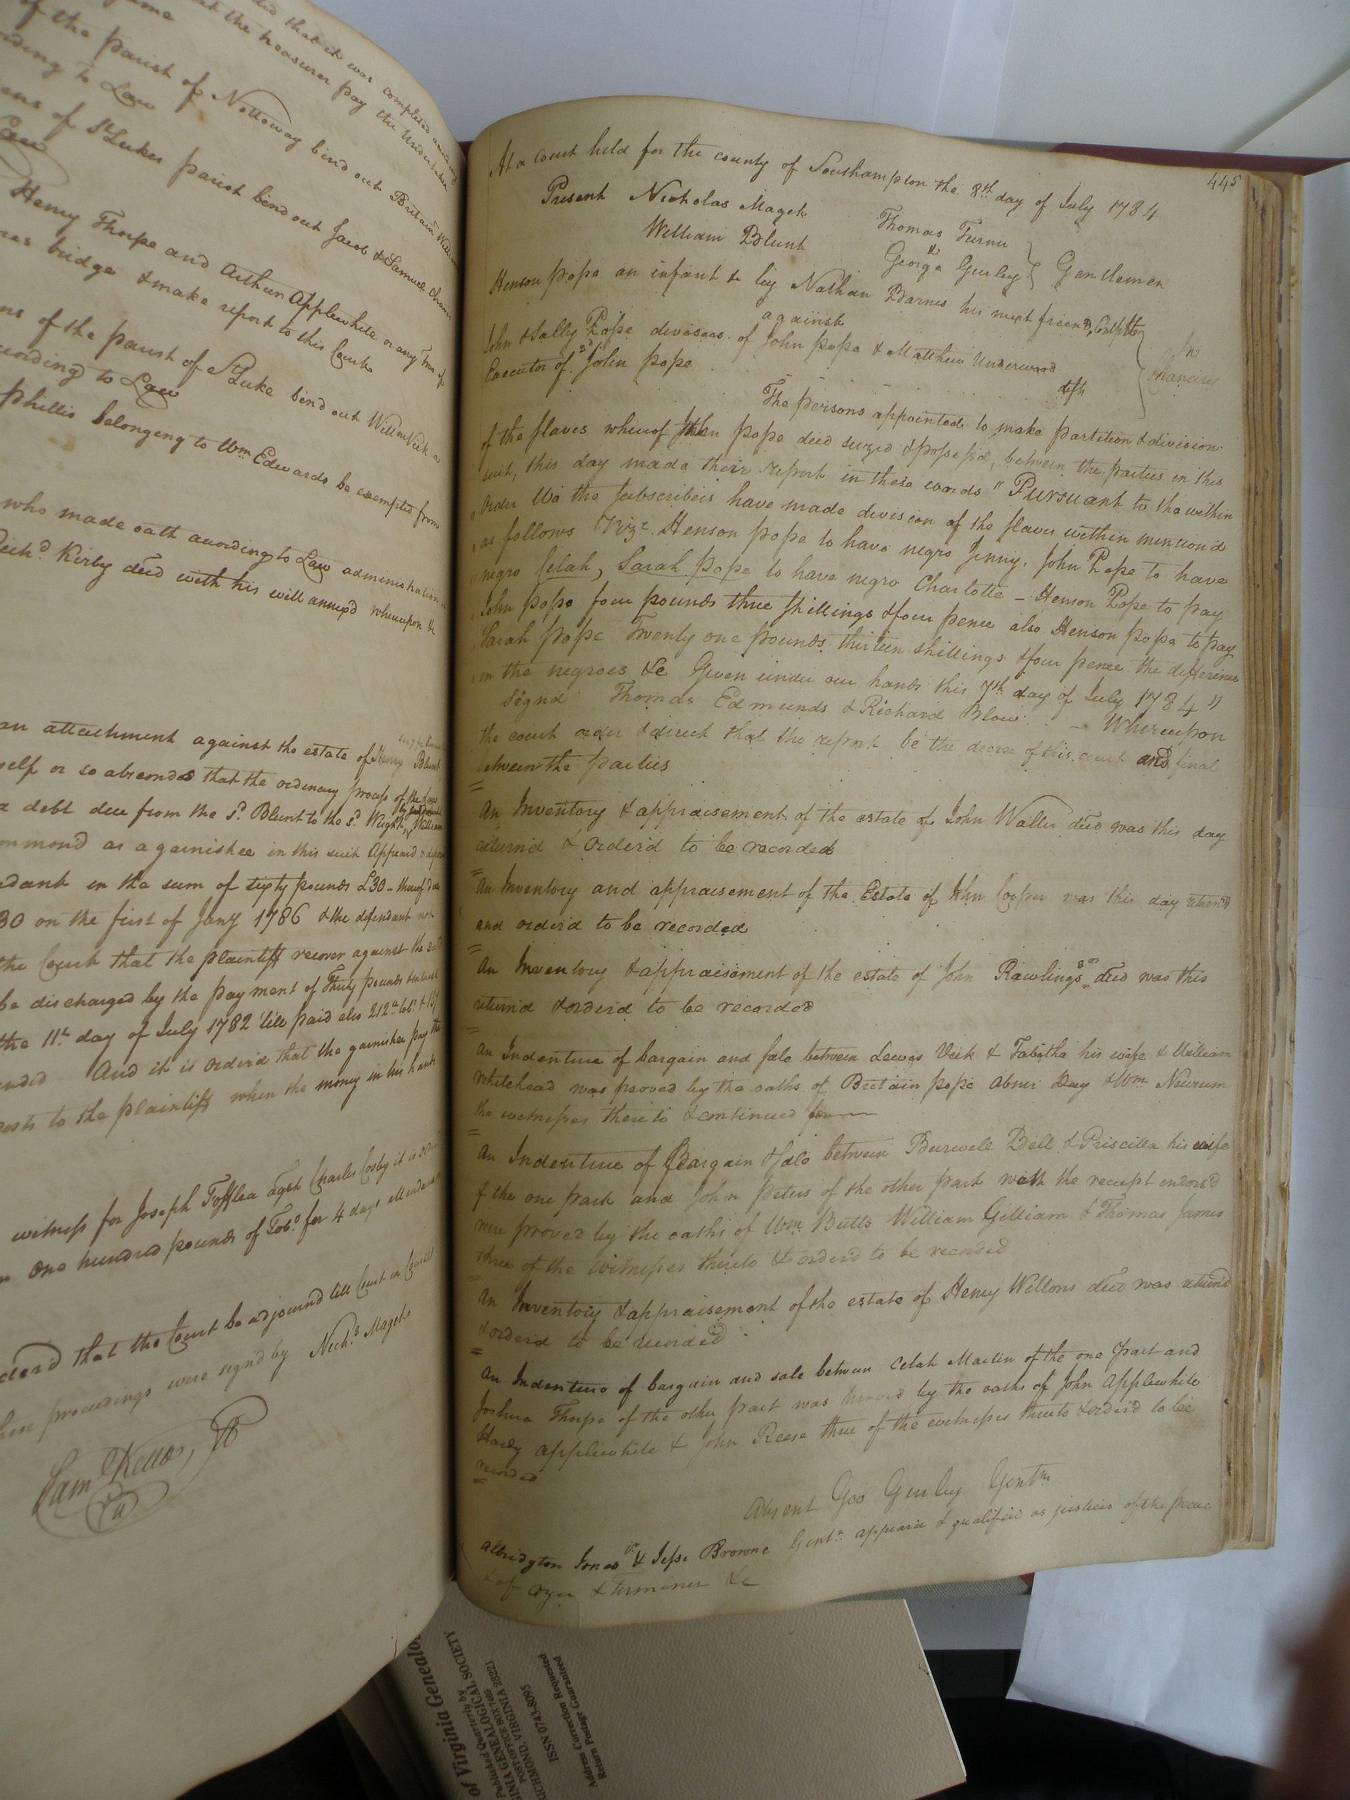 did that it was completed
that the treasurer pay the Undertaker
of the parish of Nottoway bind out Britain
according to Law
of St Lukes parish bend out Jacob & Samuel
Law
Henry Thorpe and Arthur Applewhite or any
bridge & make report to this Court
of the parish of St Luke bind out William Vick
according to Law
phillis belonging to Wm Edwards be exempted from
who made oath according to Law administration
Kirby decd with his will annex'd whereupon
an attachment against the estate of Henry Blunt
self or so absconds that the ordinary process of
debt due from the sd. Blunt to the sd. Wright, William
as a garnishee in this suit Appeard
in the sum of sixty pounds £30 - thereof
30 on the first of Jany 1786 & the defendant
the Court that the plaintiff recover against the
be discharged by the payment of Thirty pounds
the 11th day of July 1782 till paid also
And it is orderd that the garnishee pay the
costs to the plaintiff when the money in his hands
witness for Joseph Tofflea agst Charles Cosby it is
one hundred pounds of Tobo for 4 days attendance
that the Court be adjournd till Court in Course
proceedings were signd by Nichs Magett
Sam Kello,
445
At a Court held for the county of Southampton the 8th day of July 1784
Present Nicholas Magett Thomas Turner
William Blunt George Gurley Gentlemen
Henson pope an infant &c by Nathan Barnes his next friend,
against
John & Sally Pope devisees of John pope & Matthew Underwood
Executor of sd John pope deft
In Chancery
The persons appointed to make partition & division
of the slaves whereof John pope died seized & possess'd, between the parties in this
suit, this day made their report in these words " Pursuant to the within
Order We the subscribers have made division of the slaves within mention'd
as follows Vizt Henson pope to have negro Jenny, John Pope to have
negro Selah, Sarah pope to have negro Charlotte - Henson Pope to pay
John pope four pounds three shillings & four pence also Henson pope to pay
Sarah pope Twenty one pounds thirteen shillings & four pence the difference
in the negroes &c Given under our hands this 7th day of July 1784 "
Signd Thomas Edmunds & Richard Blow - Whereupon
the court order & direct that the report be the decree of this court and final
between the parties
An Inventory & appraisement of the estate of John Waller decd was this day
returnd & orderd to be recorded
An Inventory and appraisement of the Estate of John Cooper was this day returnd
and orderd to be recorded
An Inventory & appraisement of the estate of John Rawlings Senr decd was this
returnd & orderd to be recorded
An Indenture of bargain and sale between Lewis Vick & Tabitha his wife & William
Whitehead was proved by the oaths of Britain pope Abner Day & Wm Newsum
the witnesses thereto & continued for
An Indenture of Bargain & sale between Burwell Bell & Priscilla his wife
of the one part and John Peters of the other part with the receipt endors'd
were proved by the oaths of Wm Butts William Gilliam & Thomas James
three of the Witnesses thereto & orderd to be recorded
An Inventory & appraisement of the estate of Henry Wellons decd was returnd
& orderd to be recorded
An Indenture of bargain and sale between Celah Martin of the one part and
Joshua Thorpe of the other part was proved by the oaths of John Applewhite
Hardy applewhite & John Reese three of the witnesses thereto & orderd to be
recorded
Absent Geo Gurley Gentn
Albridgton Jones & Jesse Browne Gentn appeard & qualified as justices of the peace
& of oyer & terminer &c
of Virginia Genealo
Published Quarterly by
GINIA GENEALOGICAL SOCIETY
POST OFFICE BOX 7469
CHMOND, VIRGINIA 23221
ISSN 0743-8095
Address Correction Requested
Return Postage Guaranteed